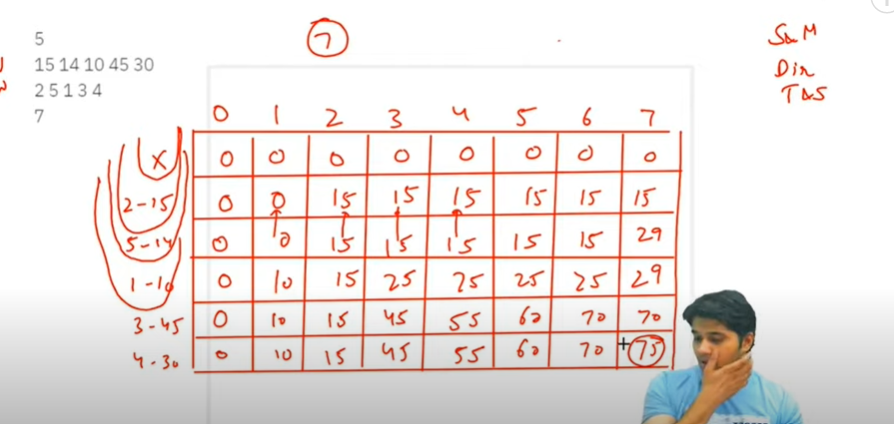 5
7
SuM
15 14 10 45 30
Dir
2 5 1 3 4
T&S
7
0 1 2 3 4 5 6 7
x 0 0 0 0 0 0 0 0
2-15 0 0 15 15 15 15 15 15
5-14 0 0 15 15 15 15 15 29
1-10 0 10 15 25 25 25 25 29
3-45 0 10 15 45 55 60 70 70
4-30 0 10 15 45 55 60 70 75